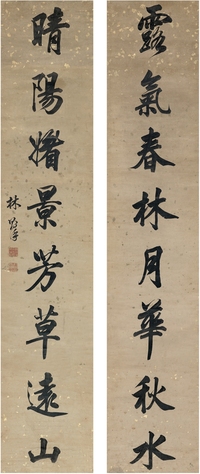 露氣春林月華秋水
晴陽媚景芳草遠山
林